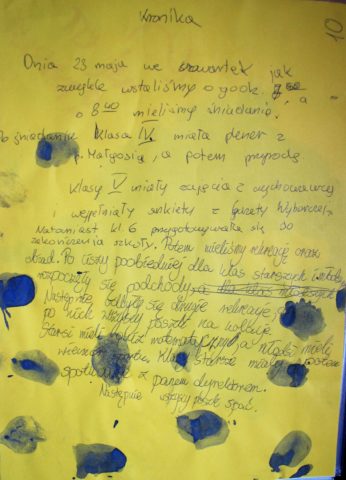 Kronika
10
Dnia 23 maja we czwartek jak
zwykle wstaliśmy o godz. 7 00, a
o 8 40 mieliśmy śniadanie.
Po śniadaniu klasa IV miała plener z
p. Małgosią, a potem przyrodę
Klasy V miały zajęcia z wychowawcą
i wypełniały ankiety z Gazety Wyborczej.
Natomiast kl. 6 przygotowywała się do
zakończenia szkoły. Potem mieliśmy rekreację oraz
obiad. Po ciszy poobiedniej dla klas starszych i młodszych
rozpoczęły się podchody, a dla klas młodszych
Następnie odbyła się druga rekreacja,
po niej wszyscy poszli na kolację.
Starsi mieli matematyczny, a młodsi mieli
wieczór Klasy starsze miały potem
spotkanie z panem dyrektorem.
Następnie wszyscy poszli spać.